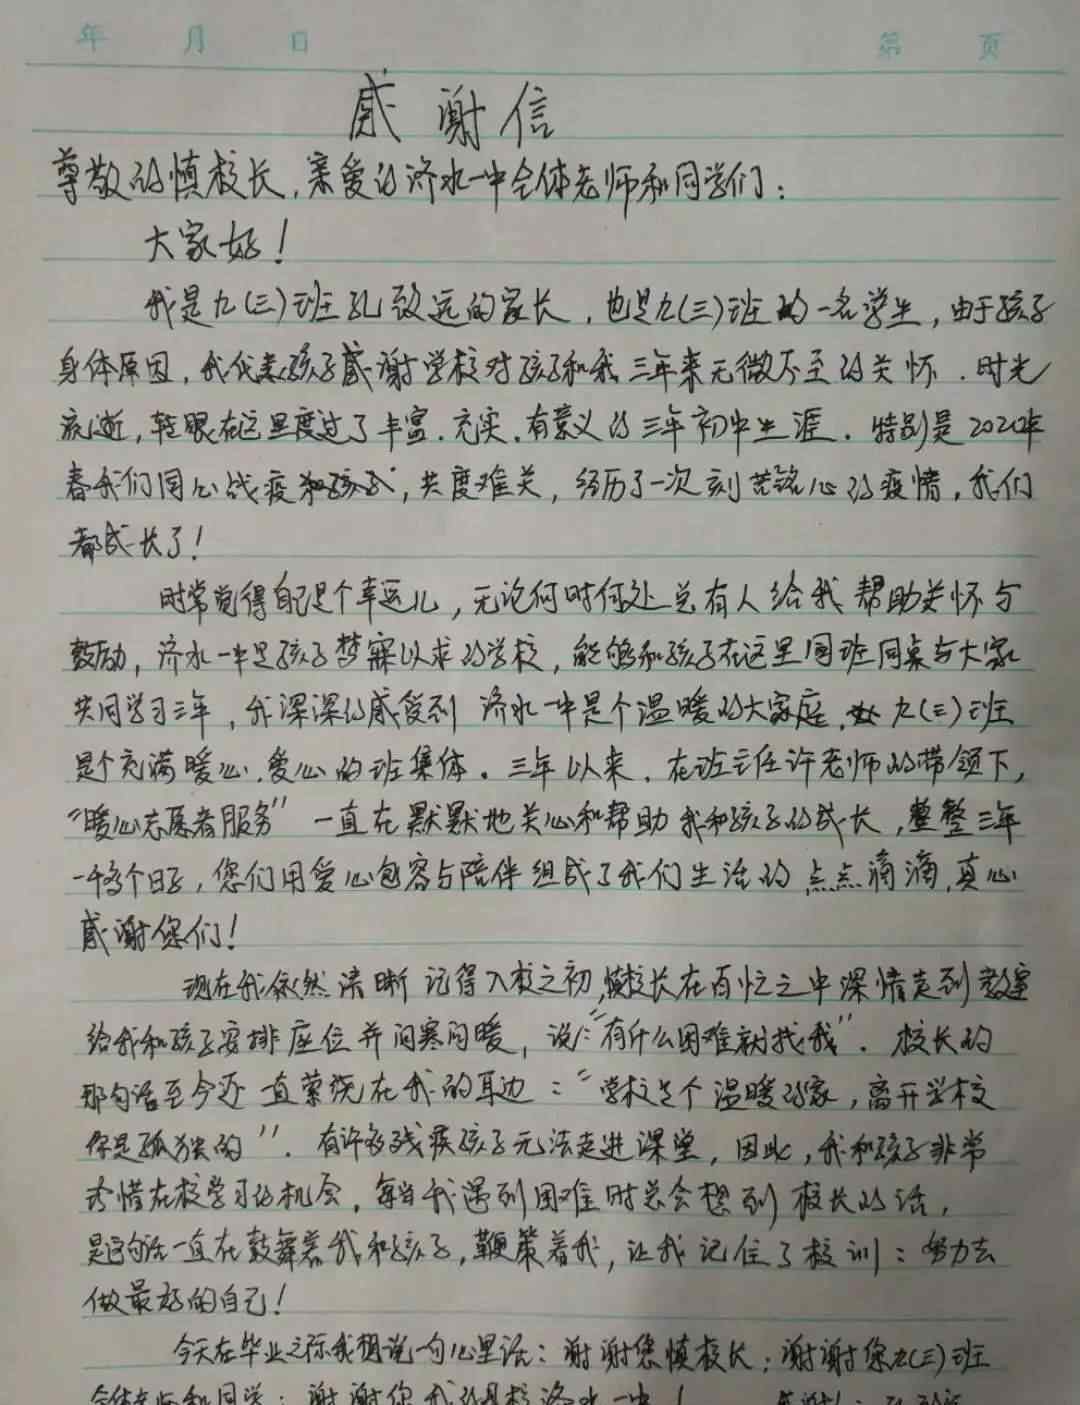 年 月 日 第 页
感谢信
尊敬的慎校长，亲爱的济水一中全体老师和同学们：
大家好！
我是九(三)班孔致远的家长，也是九(三)班的一名学生，由于孩子
身体原因，我代表孩子感谢学校对孩子和我三年来无微不至的关怀．时光
流逝，转眼在这里度过了丰富．充实．有意义的三年初中生涯．特别是2020年
春我们同心战疫，共度难关，经历了一次刻苦铭心的疫情，我们
都成长了！
时常觉得自己是个幸运儿，无论何时何处总有人给我帮助关怀与
鼓励，济水一中是孩子梦寐以求的学校，能够和孩子在这里同班同桌与大家
共同学习三年，我深深的感受到济水一中是个温暖的大家庭．九(三)班
是个充满暖心．爱心的班集体．三年以来．在班主任许老师的带领下，
“暖心志愿者服务”一直在默默地关心和帮助我和孩子的成长，整整三年
一千多个日子，您们用爱心包容与陪伴组成了我们生活的点点滴滴，真心
感谢您们！
现在我依然清晰记得入校之初，慎校长在百忙之中深情走到教室
给我和孩子安排座位并问寒问暖，说：“有什么困难就找我”．校长的
那句话至今还一直萦绕在我的耳边：“学校是个温暖的家，离开学校
你是孤独的”．有许多残疾孩子无法走进课堂，因此，我和孩子非常
珍惜在校学习的机会，每当我遇到困难时总会想到校长的话，
是这句话一直在鼓舞着我和孩子，鞭策着我，让我记住了校训：努力去
做最好的自己！
今天在毕业之际我想说一句心里话：谢谢您慎校长；谢谢您九(三)班
全体老师和同学；谢谢您我的母校济水一中！